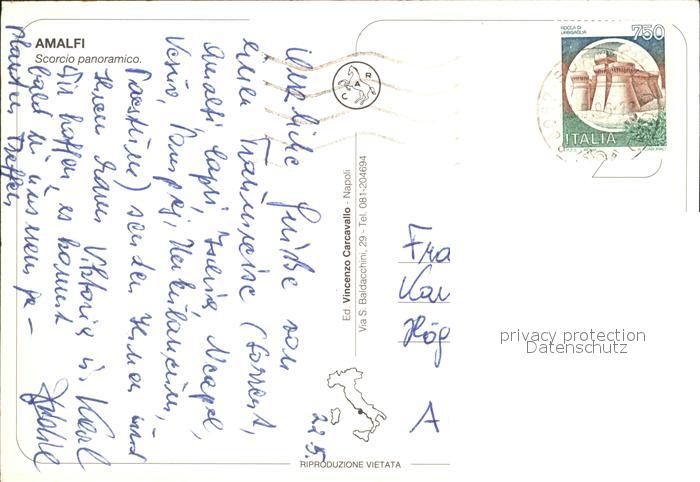 AMALFI
Scorcio panoramico.
herzliche Grüße von
einer Traumreise (Sorrent,
Amalfi, Capri, Ischia, Neapel,
Vesuv, Pompej, Herkulaneum,
Positano) senden Ihnen und
Ihren Viktoria u. Karl
Wir hoffen, es kommt
bald zu unserem ge-
planten Treffen
22.5.
Ed. Vincenzo Carcavallo - Napoli
Via S. Baldacchini, 29 - Tel. 081-204694
CAR
RIPRODUZIONE VIETATA
ROCCA DI
URBISAGLIA
750
ITALIA
Fra
Kar
Hög
A
privacy protection
Datenschutz